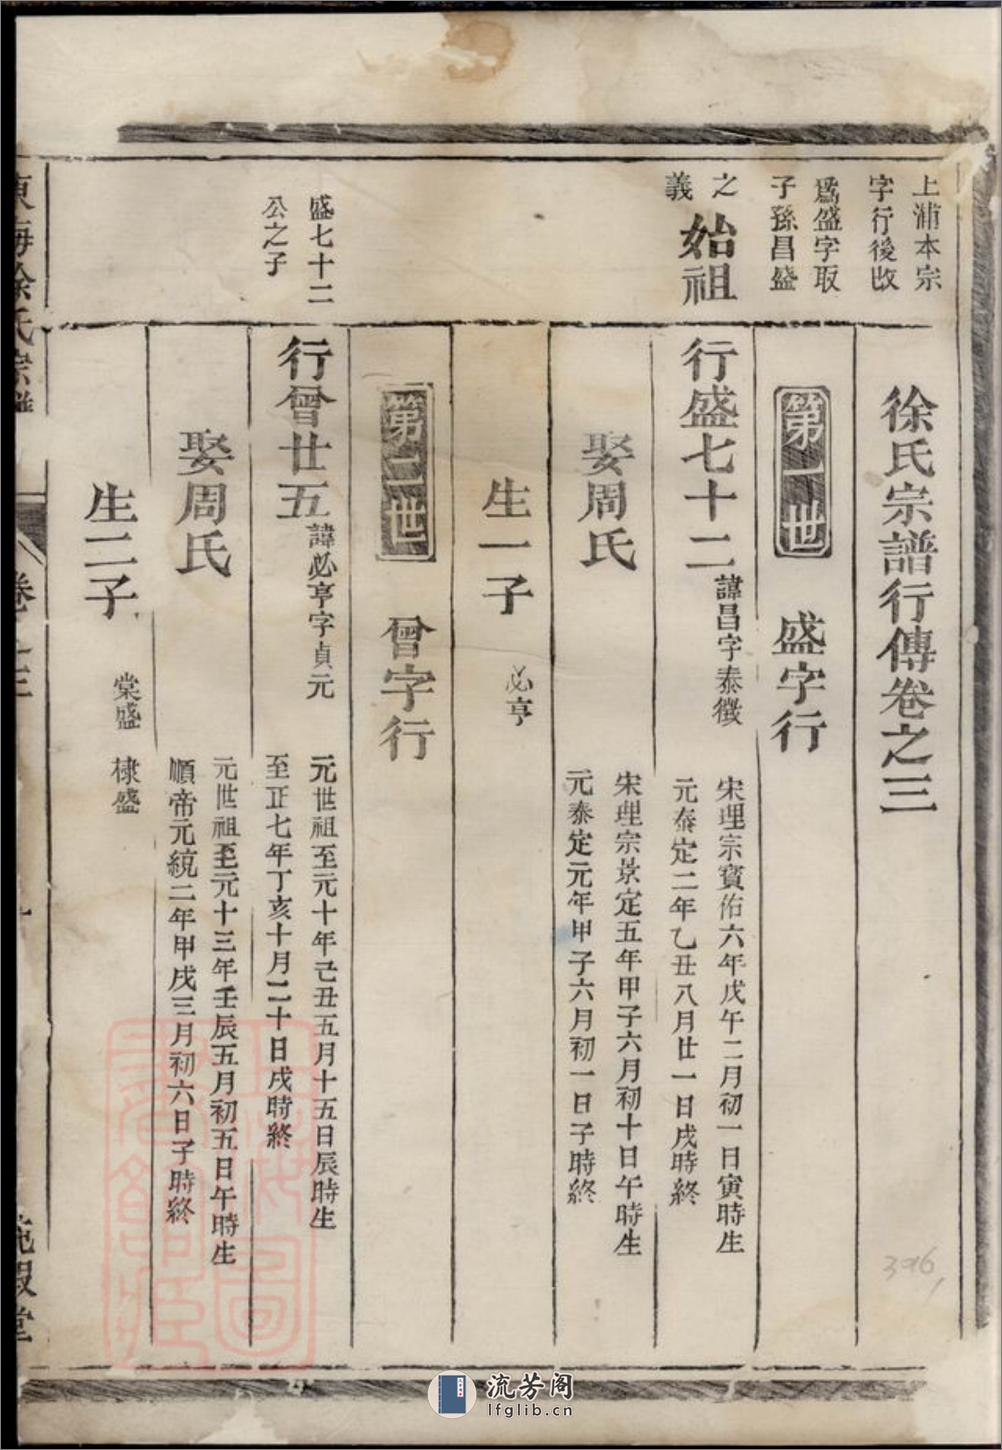 徐氏宗譜行傳卷之三
上浦本宗
字行後改
爲盛字取
子孫昌盛
之
義
第一世 盛字行
始祖
行盛七十二
諱昌字泰徵
宋理宗寳佑六年戊午二月初一日寅時生
元泰定二年乙丑八月廿一日戌時終
娶周氏
宋理宗景定五年甲子六月初十日午時生
元泰定元年甲子六月初一日子時終
生一子
必亨
第二世 曾字行
盛七十二
公之子
行曾廿五
諱必亨字貞元
元世祖至元十年己丑五月十五日辰時生
至正七年丁亥十月二十日戌時終
娶周氏
元世祖至元十三年壬辰五月初五日午時生
順帝元統二年甲戌三月初六日子時終
生二子
棠盛 棣盛
東海徐氏宗譜
卷之三
396
流芳阁
lfglib.cn